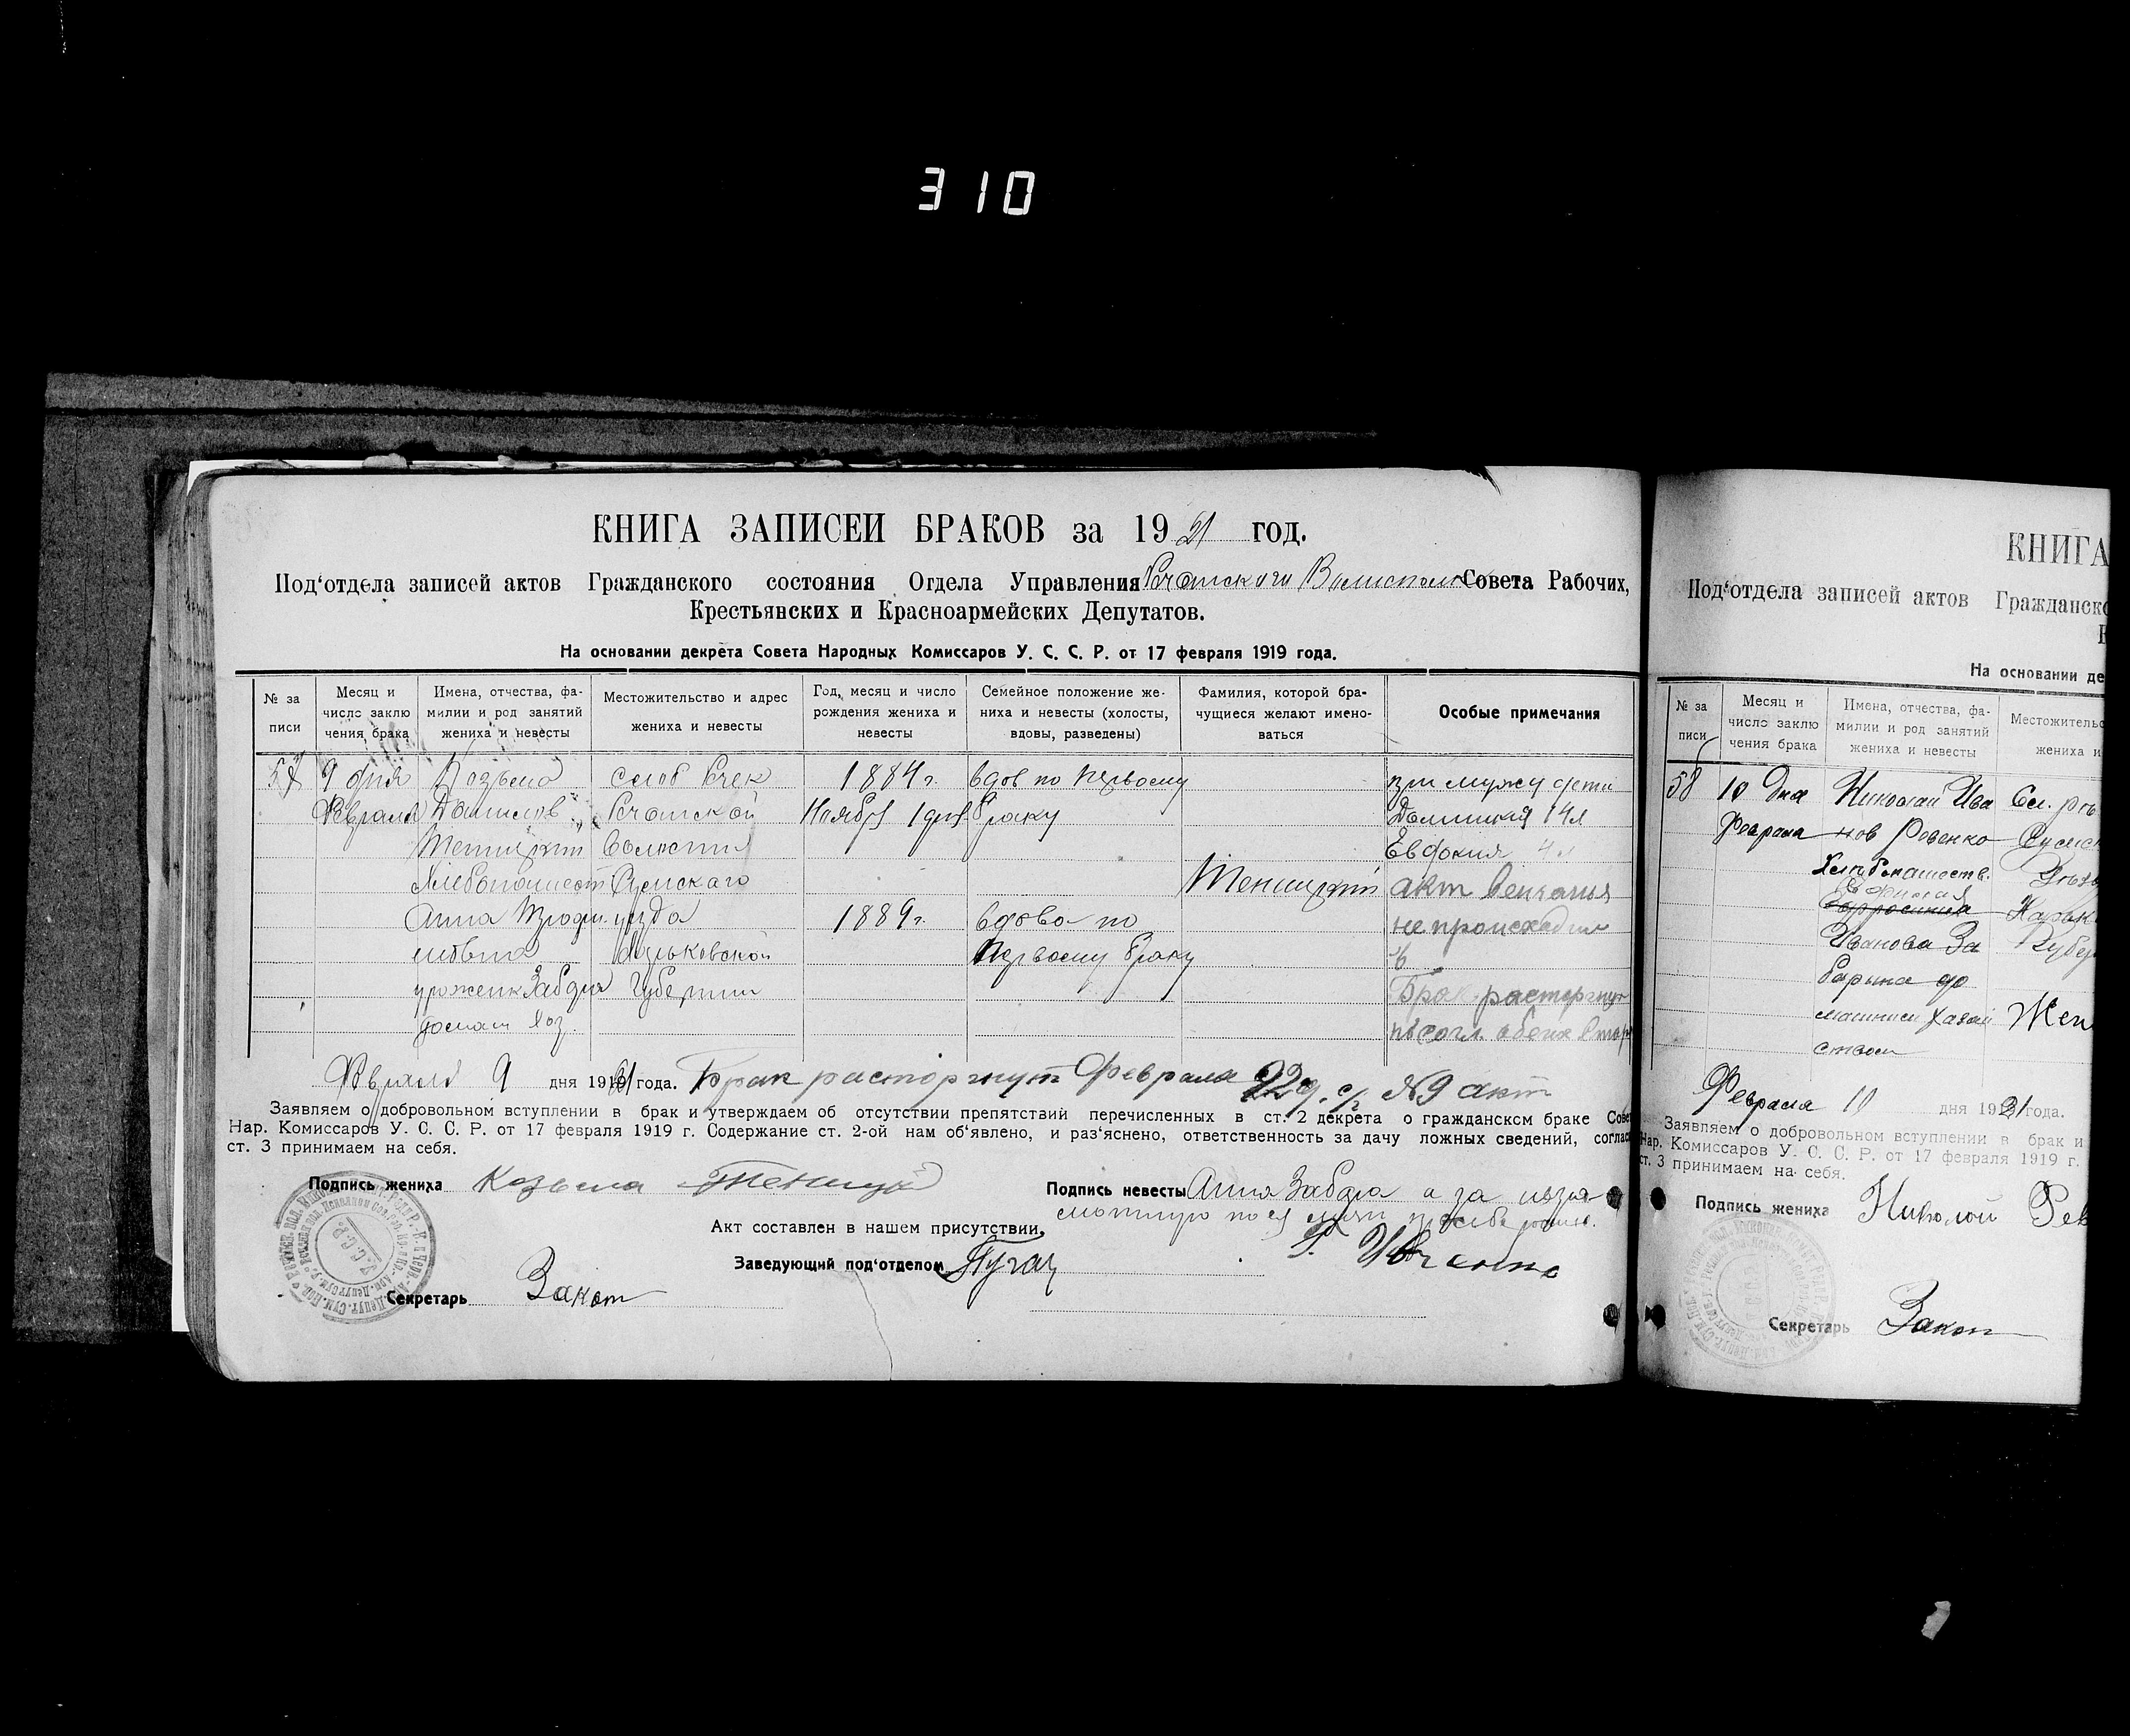 310
КНИГА ЗАПИСЕЙ БРАКОВ за 1921 год.
Под‘отдела записей актов Гражданского состояния Отдела Управления Речанского Совета Рабочих,
Крестьянских и Красноармейских Депутатов.
На основании декрета Совета Народных Комиссаров У. С. С. Р. от 17 февраля 1919 года.
№ за
писи
Месяц и
число заклю
чения брака
Имена, отчества, фа-
милии и род занятий
жениха и невесты
Местожительство и адрес
жениха и невесты
Год, месяц и число
рождения жениха и
невесты
Семейное положение же-
ниха и невесты (холосты,
вдовы, разведены)
Фамилия, которой бра-
чущиеся желают имено-
ваться
Особые примечания
57
9 дня
Февраля
Козьма
Данилов
Теницкий
Хлебопашест
Анна
урожен Забдра
домаш хоз.
слоб Речек
Речанской
Волости
Сумского
уезда
Харьковской
Губернии
1884 г.
Ноября 1 дня
1889 г.
вдов по первому
браку
вдова по
первому браку
Теницкий
при мужу дети
14 л
Евдокия 4 л
акт венчания
не происходил
Брак расторгнут
согл. обеих стор
Февраля 9 дня 1921 года. Брак расторгнут Февраля 22 № 9 акт
Заявляем о добровольном вступлении в брак и утверждаем об отсутствии препятствий перечисленных в ст. 2 декрета о гражданском браке Сове
Нар. Комиссаров У. С. С. Р. от 17 февраля 1919 г. Содержание ст. 2-ой нам об‘явлено, и раз‘яснено, ответственность за дачу ложных сведений, соглас
ст. 3 принимаем на себя.
Подпись жениха Козьма Теницкий
Подпись невесты Анна Забдра а за
по ея
Акт составлен в нашем присутствии.
Заведующий под‘отделом Пугач
Секретарь Закот
КНИГА
Под‘отдела записей актов Гражданско
К
На основании де
№ за
писи
Месяц и
число заклю
чения брака
Имена, отчества, фа-
милии и род занятий
жениха и невесты
Местожительс
жениха и
58
10 дня
Февраля
Николай Ива
нов Ревенко
Хлебопашеств.
Ефросиния
Иванова За
барина до
машнем хозяй
ством
Сл. Рѣ
Сумск
Уезд
Харьк
Губер
Жен
Февраля 10 дня 1921 года.
Заявляем о добровольном вступлении в брак и
Нар. Комиссаров У. С. С. Р. от 17 февраля 1919 г.
ст. 3 принимаем на себя.
Подпись жениха Николай Рев
Секретарь Закот